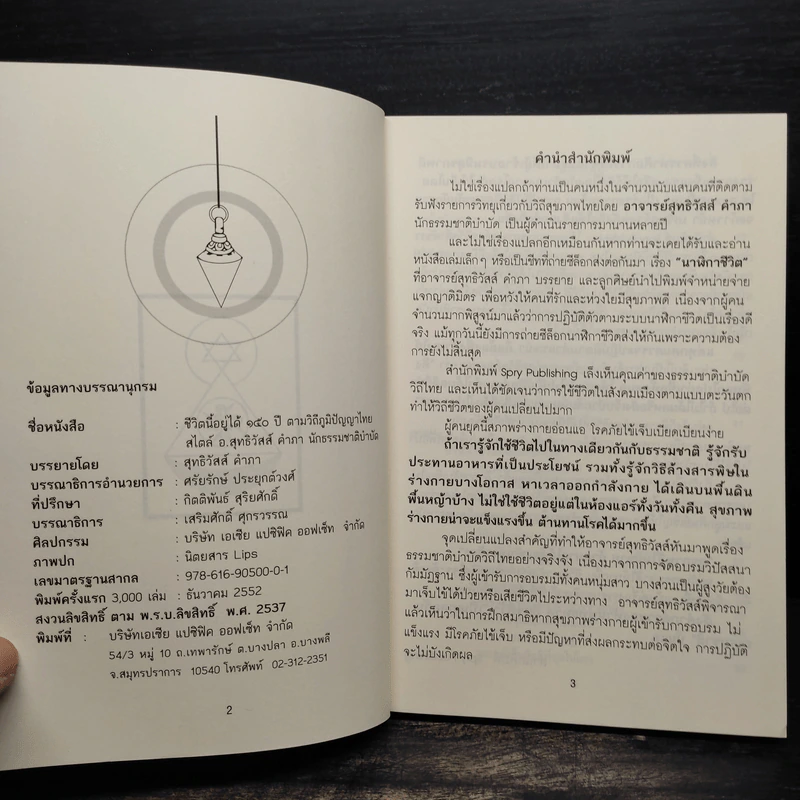 ข้อมูลทางบรรณานุกรม
ชื่อหนังสือ : ชีวิตนี้อยู่ได้ ๑๔๐ ปี ตามวิถีภูมิปัญญาไทย
สไตล์ อ.สุทธิวัสส์ คำภา นักธรรมชาติบำบัด
บรรยายโดย : สุทธิวัสส์ คำภา
บรรณาธิการอำนวยการ : ศรัยรักษ์ ประยุกต์วงศ์
ที่ปรึกษา : กิตติพันธ์ สุริยศักดิ์
บรรณาธิการ : เสริมศักดิ์ ศุกรวรรณ
ศิลปกรรม : บริษัท เอเชีย แปซิฟิค ออฟเซ็ท จำกัด
ภาพปก : นิตยสาร Lips
เลขมาตรฐานสากล : 978-616-90500-0-1
พิมพ์ครั้งแรก 3,000 เล่ม : ธันวาคม 2552
สงวนลิขสิทธิ์ ตาม พ.ร.บ.ลิขสิทธิ์ พ.ศ. 2537
พิมพ์ที่ : บริษัทเอเซีย แปซิฟิค ออฟเซ็ท จำกัด
54/3 หมู่ 10 ถ.เทพารักษ์ ต.บางปลา อ.บางพลี
จ.สมุทรปราการ 10540 โทรศัพท์ 02-312-2351
2
คำนำสำนักพิมพ์
ไม่ใช่เรื่องแปลกถ้าท่านเป็นคนหนึ่งในจำนวนนับแสนคนที่ติดตาม
รับฟังรายการวิทยุเกี่ยวกับวิถีสุขภาพไทยโดย อาจารย์สุทธิวัสส์ คำภา
นักธรรมชาติบำบัด เป็นผู้ดำเนินรายการมานานหลายปี
และไม่ใช่เรื่องแปลกอีกเหมือนกันหากท่านจะเคยได้รับและอ่าน
หนังสือเล่มเล็กๆ หรือเป็นชีทที่ถ่ายซีล็อกส่งต่อกันมา เรื่อง “นาฬิกาชีวิต”
ที่อาจารย์สุทธิวัสส์ คำภา บรรยาย และลูกศิษย์นำไปพิมพ์จำหน่ายจ่าย
แจกญาติมิตร เพื่อหวังให้คนที่รักและห่วงใยมีสุขภาพดี เนื่องจากผู้คน
จำนวนมากพิสูจน์มาแล้วว่าการปฏิบัติตัวตามระบบนาฬิกาชีวิตเป็นเรื่องดี
จริง แม้ทุกวันนี้ยังมีการถ่ายซีล็อกนาฬิกาชีวิตส่งให้กันเพราะความต้อง
การยังไม่สิ้นสุด
สำนักพิมพ์ Spry Publishing เล็งเห็นคุณค่าของธรรมชาติบำบัด
วิถีไทย และเห็นได้ชัดเจนว่าการใช้ชีวิตในสังคมเมืองตามแบบตะวันตก
ทำให้วิถีชีวิตของผู้คนเปลี่ยนไปมาก
ผู้คนยุคนี้สภาพร่างกายอ่อนแอ โรคภัยไข้เจ็บเบียดเบียนง่าย
ถ้าเรารู้จักใช้ชีวิตไปในทางเดียวกันกับธรรมชาติ รู้จักรับ
ประทานอาหารที่เป็นประโยชน์ รวมทั้งรู้จักวิธีล้างสารพิษใน
ร่างกายบางโอกาส หาเวลาออกกำลังกาย ได้เดินบนพื้นดิน
พื้นหญ้าบ้าง ไม่ใช่ใช้ชีวิตอยู่แต่ในห้องแอร์ทั้งวันทั้งคืน สุขภาพ
ร่างกายน่าจะแข็งแรงขึ้น ต้านทานโรคได้มากขึ้น
จุดเปลี่ยนแปลงสำคัญที่ทำให้อาจารย์สุทธิวัสส์หันมาพูดเรื่อง
ธรรมชาติบำบัดวิถีไทยอย่างจริงจัง เนื่องมาจากการจัดอบรมวิปัสสนา
กัมมัฏฐาน ซึ่งผู้เข้ารับการอบรมมีทั้งคนหนุ่มสาว บางส่วนเป็นผู้สูงวัยต้อง
มาเจ็บไข้ได้ป่วยหรือเสียชีวิตไประหว่างทาง อาจารย์สุทธิวัสส์พิจารณา
แล้วเห็นว่าในการฝึกสมาธิหากสุขภาพร่างกายผู้เข้ารับการอบรม ไม่
แข็งแรง มีโรคภัยไข้เจ็บ หรือมีปัญหาที่ส่งผลกระทบต่อจิตใจ การปฏิบัติ
จะไม่บังเกิดผล
3